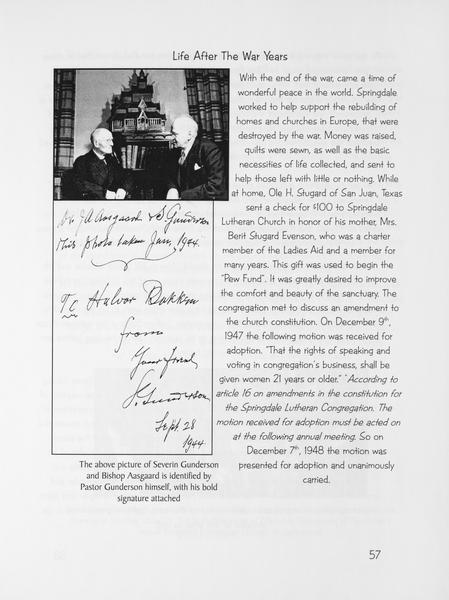 Life After The War Years
With the end of the war, came a time of
wonderful peace in the world. Springdale
worked to help support the rebuilding of
homes and churches in Europe, that were
destroyed by the war. Money was raised,
quilts were sewn, as well as the basic
necessities of life collected, and sent to
help those left with little or nothing. While
at home, Ole H. Stugard of San Juan, Texas
sent a check for $100 to Springdale
Lutheran Church in honor of his mother, Mrs.
Berit Stugard Evenson, who was a charter
member of the Ladies Aid and a member for
many years. This gift was used to begin the
"Pew Fund". It was greatly desired to improve
the comfort and beauty of the sanctuary. The
congregation met to discuss an amendment to
the church constitution. On December 9th,
1947 the following motion was received for
adoption. "That the rights of speaking and
voting in congregation's business, shall be
given women 21 years or older." *According to
article 16 on amendments in the constitution for
the Springdale Lutheran Congregation. The
motion received for adoption must be acted on
at the following annual meeting. So on
December 7th, 1948 the motion was
presented for adoption and unanimously
carried.
Aasgaard & S. Gunderson
This photo taken Jan, 1944.
To Halvor Bakken
from
Your Friend
S. Gunderson
Sept. 28
1944
The above picture of Severin Gunderson
and Bishop Aasgaard is identified by
Pastor Gunderson himself, with his bold
signature attached
57